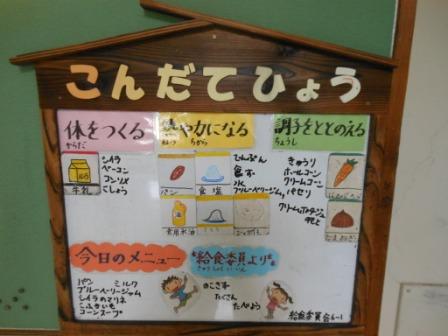 こんだてひょう
体をつくる
からだ
熱や力になる
ねつ ちから
調子をととのえる
ちょうし
牛乳
シイラ
ベーコン
コンソメ
こしょう
パン
食塩
食用米油
でんぷん
水
ブルーベリージャム
きゅうり
ホールコーン
クリームコーン
パセリ
にんじん
たまねぎ
今日のメニュー
パン ミルク
ブルーベリージャム
シイラのマリネ
こふきいも
コーンスープ
給食委員より
きゅうしょくいいん
のこさず
たくさん
たべよう
給食委員会